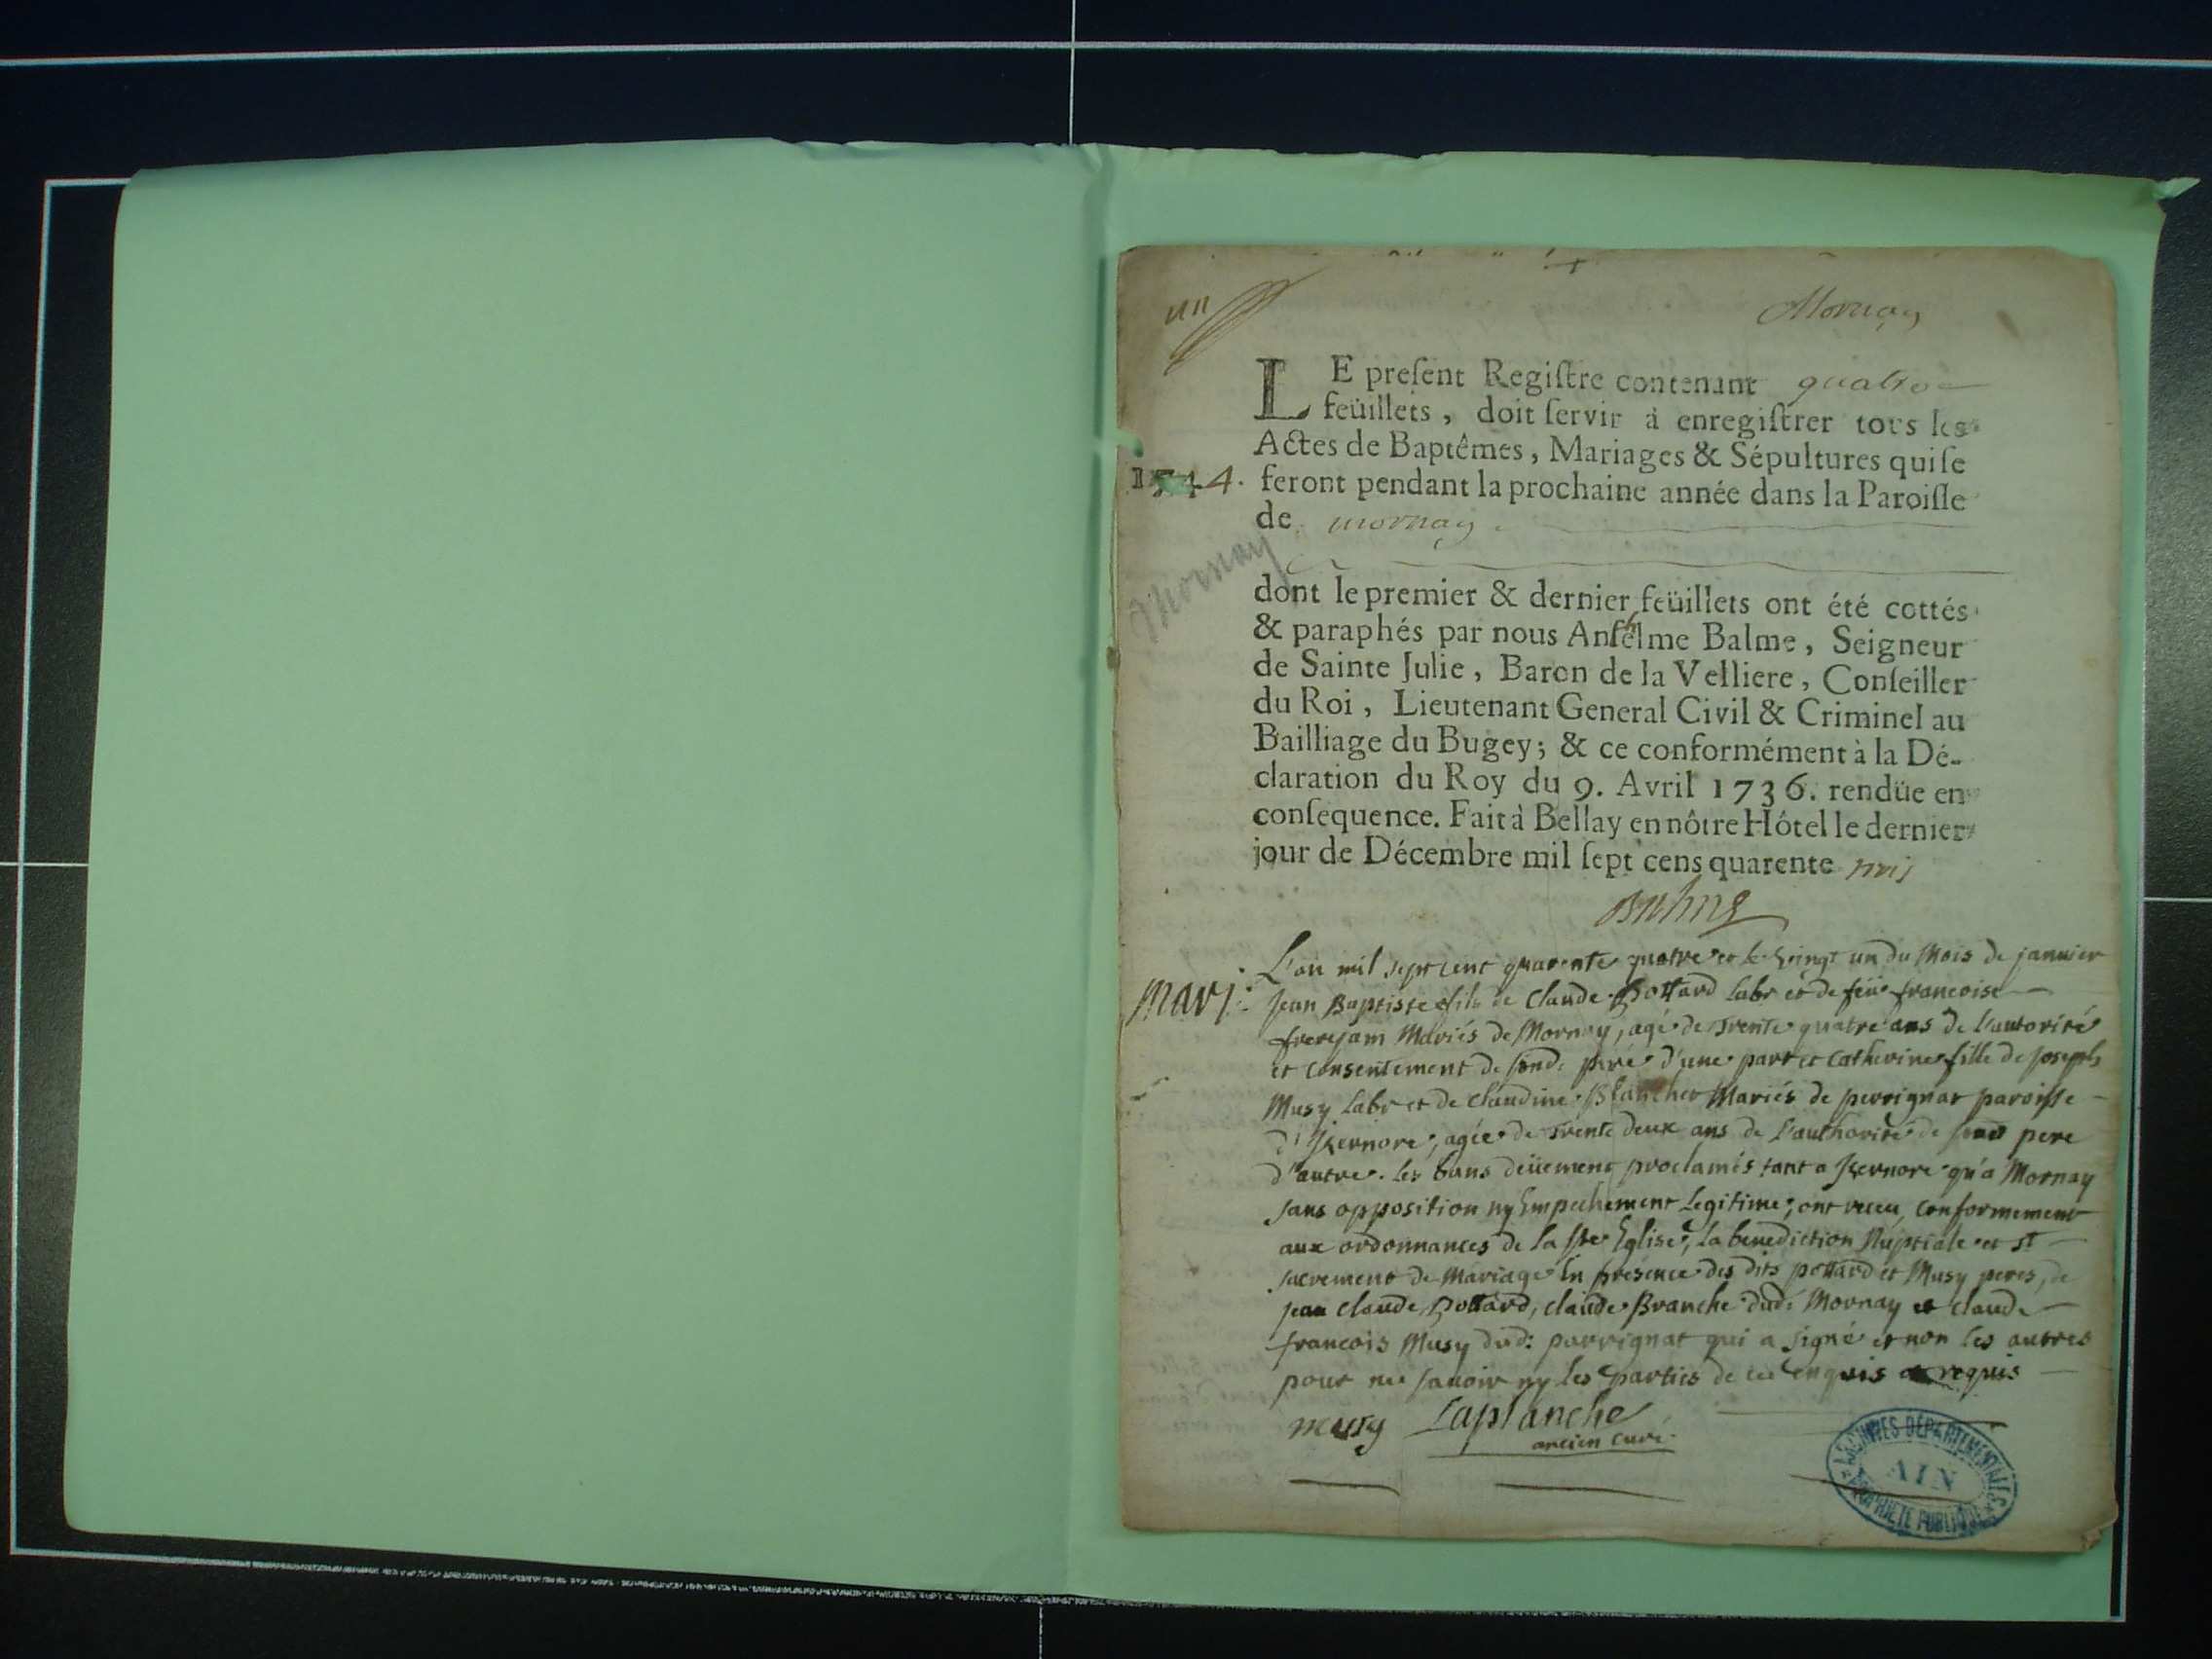 un
Mornay
LE preſent Regiſtre contenant quatre
feüillets, doit ſervir à enregiſtrer tous les
Actes de Baptêmes, Mariages & Sépultures qui ſe
feront pendant la prochaine année dans la Paroiſſe
de mornay
Mornay
dont le premier & dernier feüillets ont été cottés
& paraphés par nous Anſelme Balme, Seigneur
de Sainte Julie, Baron de la Velliere, Conſeiller
du Roi, Lieutenant General Civil & Criminel au
Bailliage du Bugey; & ce conformément à la Dé-
claration du Roy du 9. Avril 1736. rendüe en
conſequence. Fait à Bellay en nôtre Hôtel le dernier
jour de Décembre mil ſept cens quarente trois
Mari:
L'an mil sept cent quarente quatre et le vingt un du Mois de janvier
Jean Baptiste fils de Claude Bottard labr et de feüe francoise
frerejam Mariés de Mornay, agé de trente quatre ans de l'autorité
et consentement de sond: pere d'une part et Catherine fille de Joseph
Musy labr et de Claudine Blanchet Mariés de perrignat paroisse
d'Izernore, agée de trente deux ans de l'authorité de sond pere
d'autre. les bans deüement proclamés tant a Izernore qu'a Mornay
sans opposition ny Empechement legitime, ont receu conformement
aux ordonnances de la Ste Eglise, la benediction Nuptiale et St
sacrement de Mariage En presence des dits pottard et Musy peres, de
jean Claude Bottard, claude Branche dud: Mornay et claude
francois Musy dud: perrignat qui a signé et non les autres
pour ne sauoir ny les parties de ce enquis et requis
musy Laplanche
ancien curé
ARCHIVES DÉPARTEMENTALES
AIN
PROPRIÉTÉ PUBLIQUE